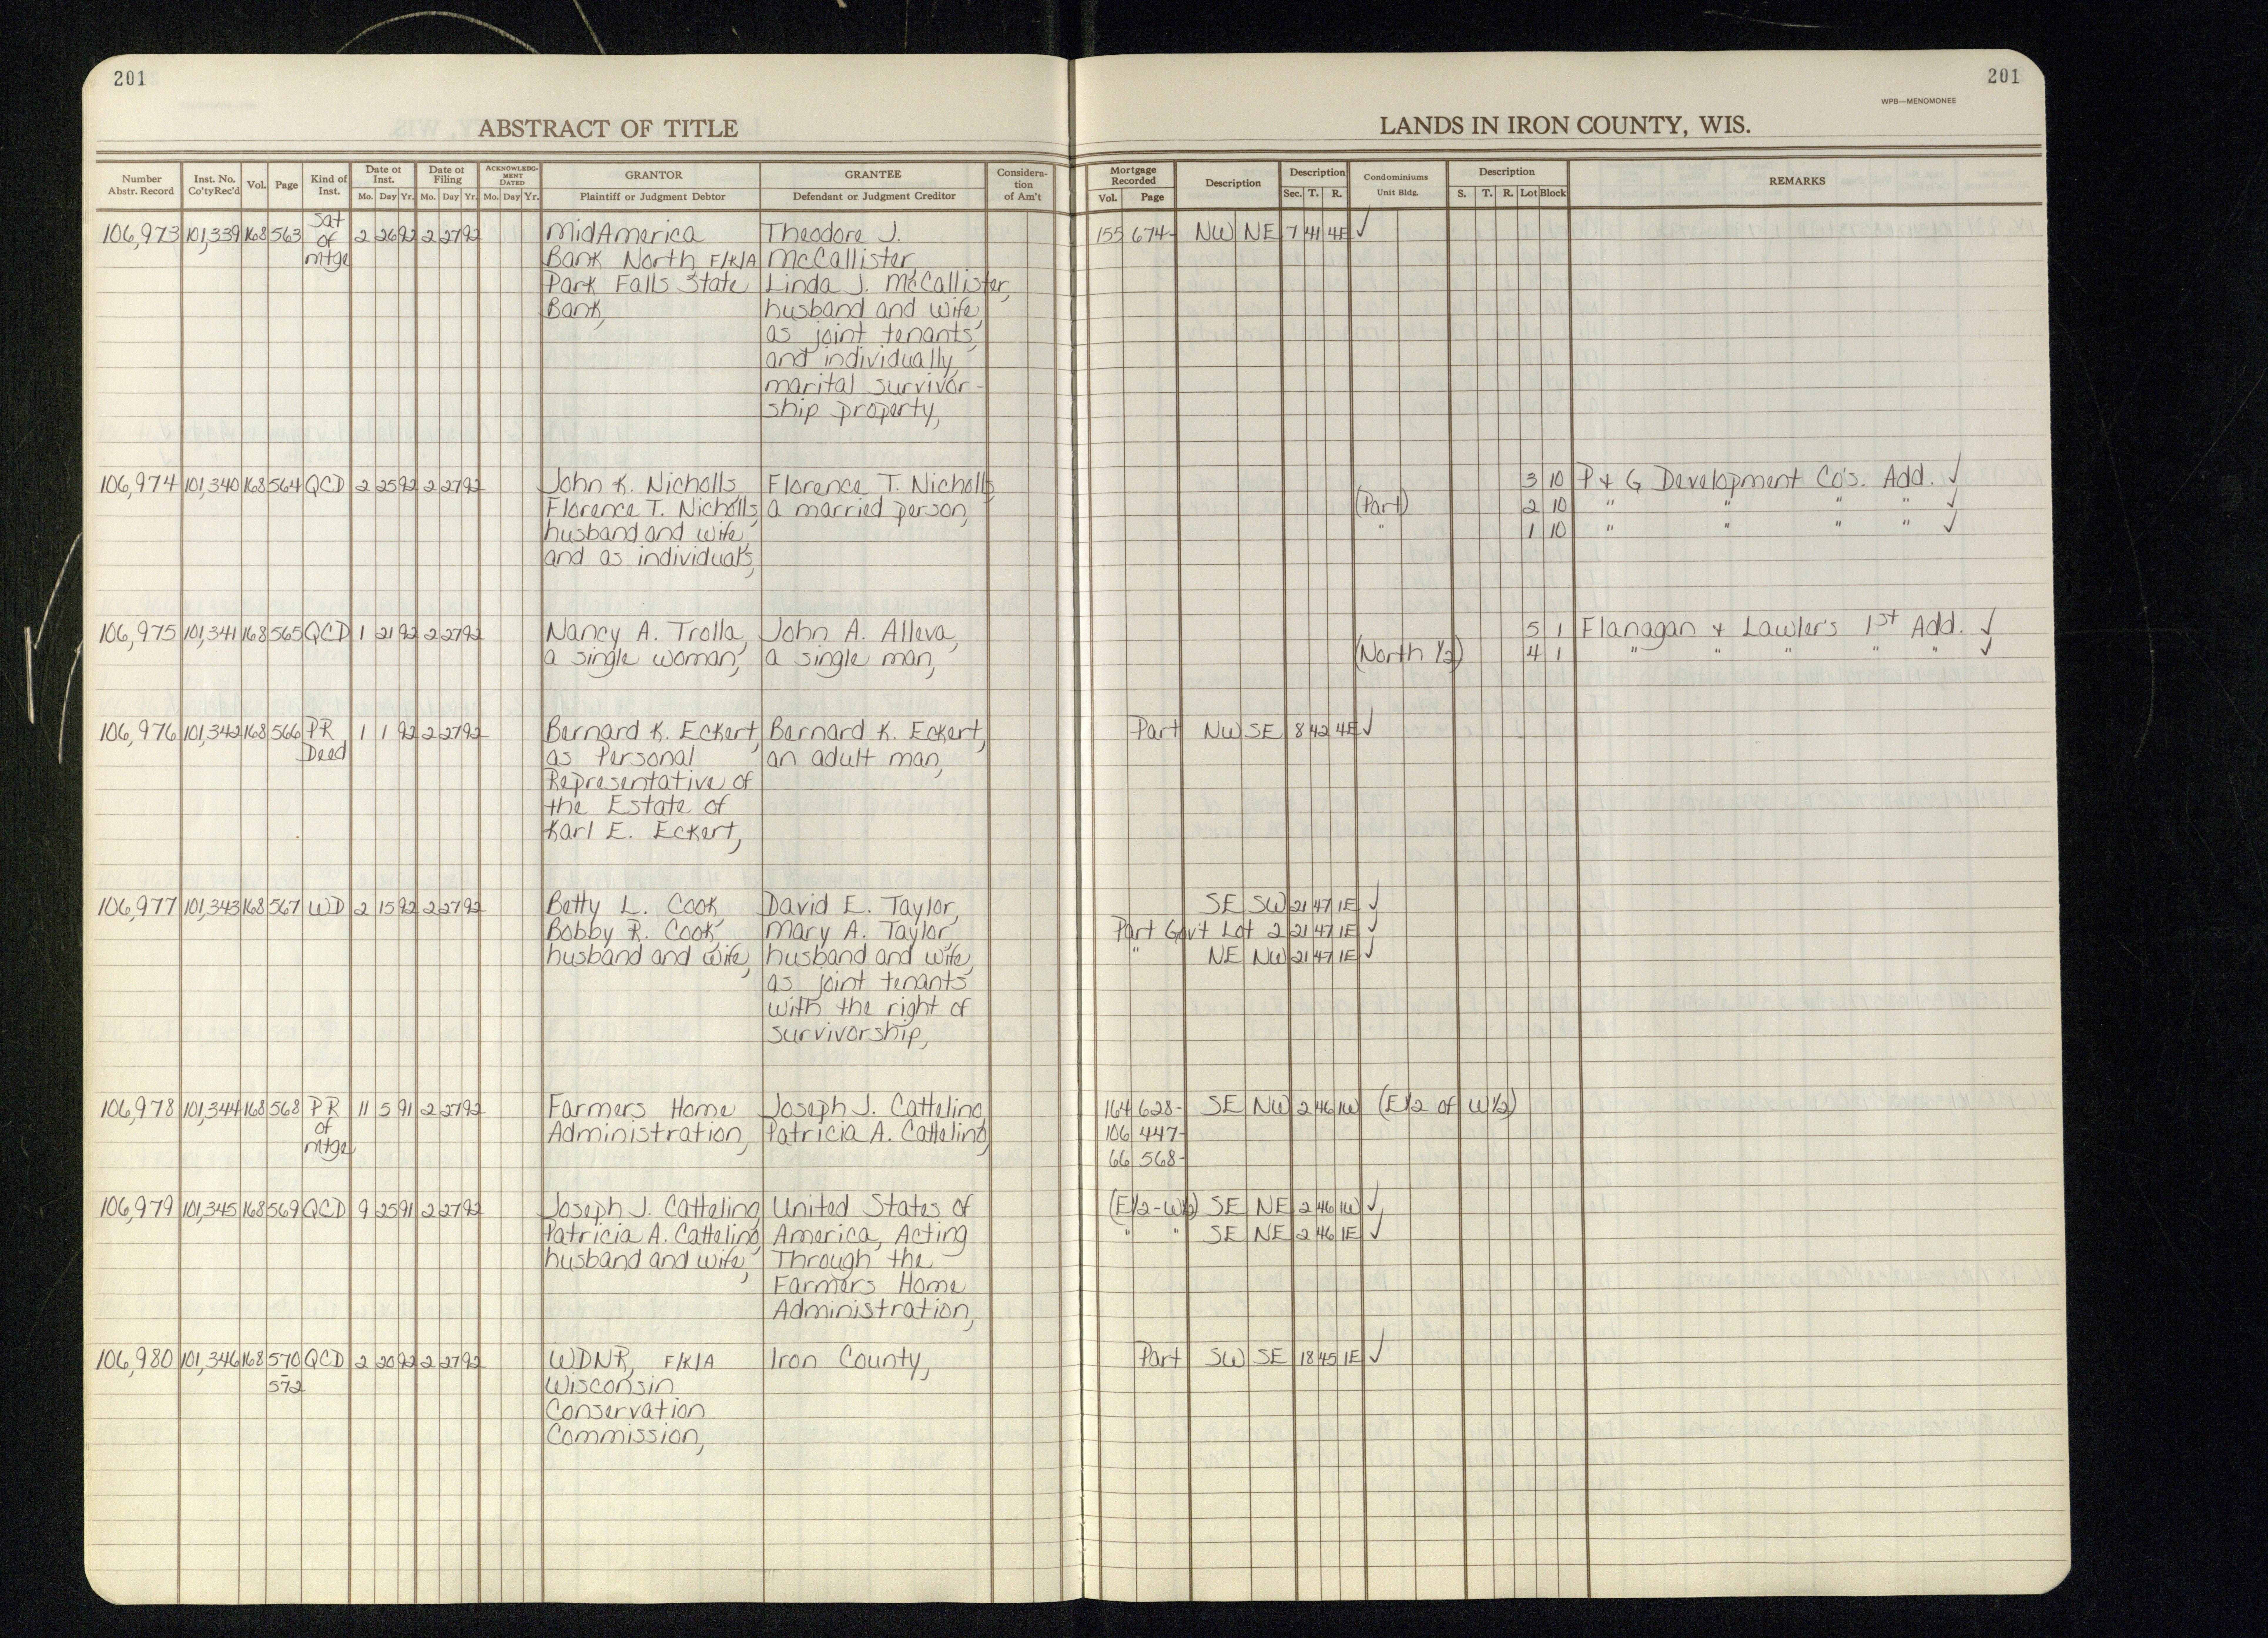 201
201
WPB—MENOMONEE
ABSTRACT OF TITLE
LANDS IN IRON COUNTY, WIS.
Number Abstr. Record
Inst. No. Co'ty Rec'd
Vol.
Page
Kind of Inst.
Date of Inst.
Mo. Day Yr.
Date of Filing
Mo. Day Yr.
ACKNOWLEDGMENT DATED
Mo. Day Yr.
GRANTOR
Plaintiff or Judgment Debtor
GRANTEE
Defendant or Judgment Creditor
Consideration of Am't
Mortgage Recorded
Vol. Page
Description
Description
Sec. T. R.
Condominiums
Unit Bldg.
Description
S. T. R. Lot Block
REMARKS
106,973 101,339 168 563 Sat of mtge 2 26 92 2 27 92 MidAmerica Theodore J. 155 674- NW NE 7 41 4E ✓
Bank North F/K/A McCallister
Park Falls State Linda J. McCallister,
Bank, husband and wife,
as joint tenants,
and individually,
marital survivor-
ship property,
106,974 101,340 168 564 QCD 2 25 92 2 27 92 John K. Nicholls, Florence T. Nicholls, 3 10 P & G Development Co's. Add. ✓
Florence T. Nicholls, a married person, (Part) 2 10 " " " " ✓
husband and wife, " 1 10 " " " " ✓
and as individuals,
106,975 101,341 168 565 QCD 1 21 92 2 27 92 Nancy A. Trolla, John A. Alleva, 5 1 Flanagan & Lawler's 1st Add. ✓
a single woman, a single man, (North 1/2) 4 1 " " " " " ✓
106,976 101,342 168 566 PR Deed 1 1 92 2 27 92 Bernard K. Eckert, Bernard K. Eckert, Part NW SE 8 42 4E ✓
as Personal an adult man,
Representative of
the Estate of
Karl E. Eckert,
106,977 101,343 168 567 WD 2 15 92 2 27 92 Betty L. Cook, David E. Taylor, SE SW 21 47 1E ✓
Bobby R. Cook, Mary A. Taylor, Part Gov't Lot 2 21 47 1E ✓
husband and wife, husband and wife, " NE NW 21 47 1E ✓
as joint tenants
with the right of
survivorship,
106,978 101,344 168 568 PR of mtge 11 5 91 2 27 92 Farmers Home Joseph J. Cattelino, 164 628- SE NW 2 46 1W (E1/2 of W1/2)
Administration, Patricia A. Cattelino, 106 447-
66 568-
106,979 101,345 168 569 QCD 9 25 91 2 27 92 Joseph J. Cattelino, United States of (E1/2-W1/2) SE NE 2 46 1W ✓
Patricia A. Cattelino, America, Acting " " SE NE 2 46 1E ✓
husband and wife, Through the
Farmers Home
Administration,
106,980 101,346 168 570-572 QCD 2 20 92 2 27 92 WDNR, F/K/A Iron County, Part SW SE 18 45 1E ✓
Wisconsin
Conservation
Commission,